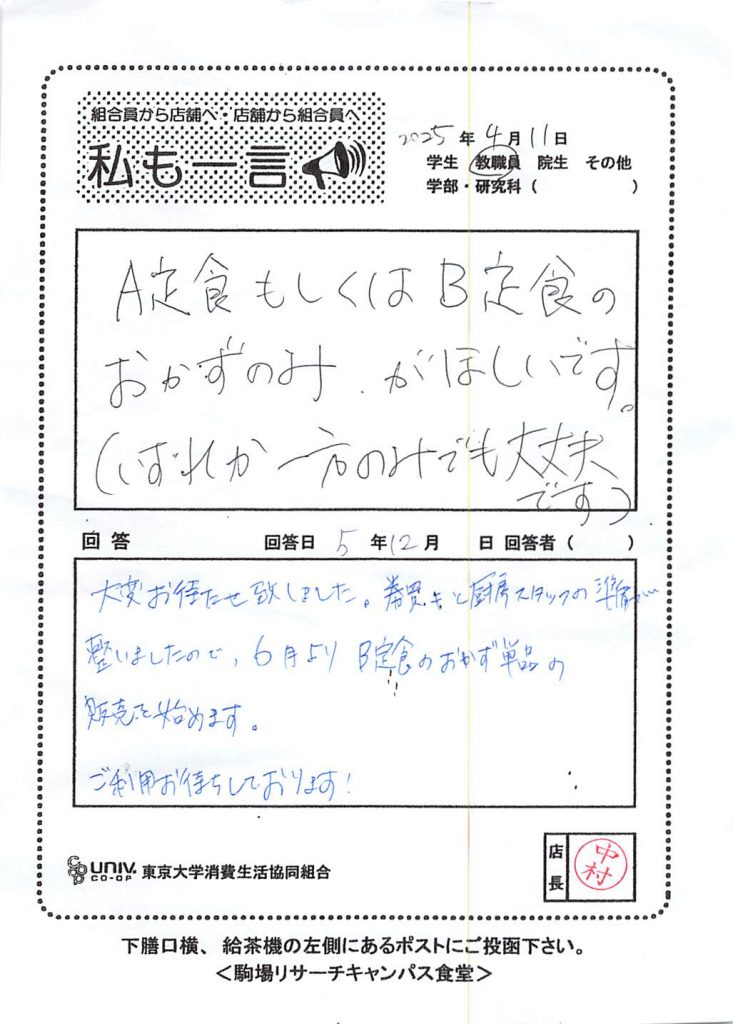 組合員から店舗へ・店舗から組合員へ
私も一言
2025年4月11日
学生 教職員 院生 その他
学部・研究科（ ）
A定食もしくはB定食の
おかずのみ、がほしいです。
(いずれか一方のみでも大丈夫
です)
回答 回答日 5年12月 日 回答者（ ）
大変お待たせ致しました。券売キと厨房スタッフの準備が
整いましたので、6月よりB定食のおかず単品の
販売を始めます。
ご利用お待ちしております!
CO-OP UNIV. CO-OP 東京大学消費生活協同組合
店長 中村
下膳口横、給茶機の左側にあるポストにご投函下さい。
＜駒場リサーチキャンパス食堂＞